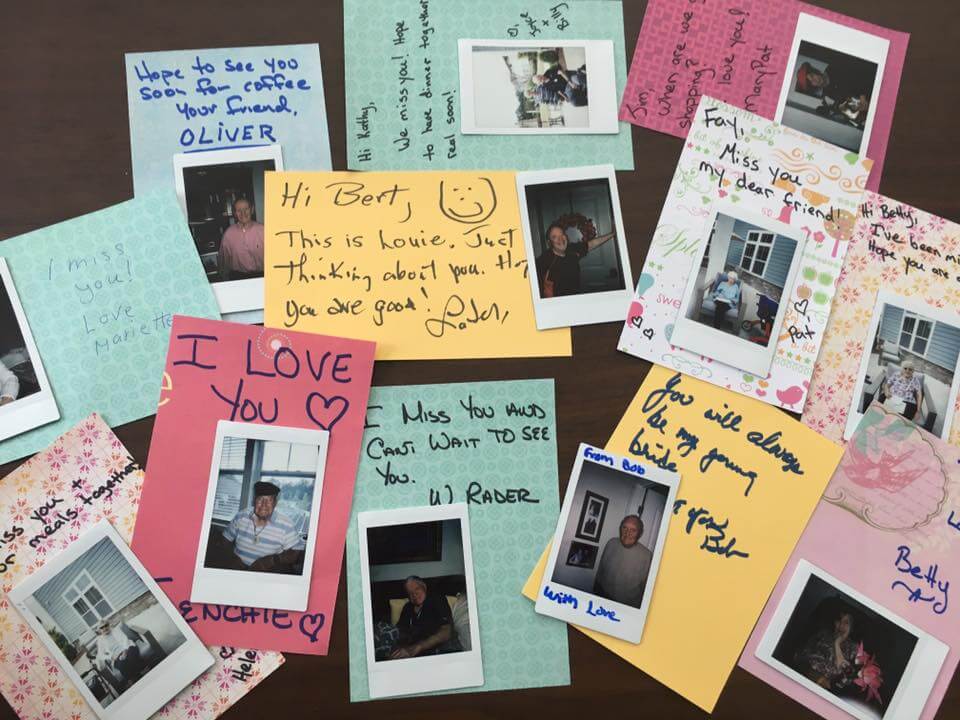 Hope to see you
soon for coffee
your friend,
OLIVER
Hi Kathy,
We miss you! Hope
to have dinner together
real soon!
+
Billy
Jim,
When are we
shopping?
love you!
MaryPat
Fay,
Miss you
my dear friend!
Pat
Hi Betty,
I've been
Hope you are
I miss
you!
Love
Mariette
Hi Bert,
This is Louie. Just
thinking about you.
you are good!
I LOVE
YOU
I MISS YOU AND
CANT WAIT TO SEE
YOU.
W RADER
You will always
be my young
bride
Bob
From Bob
With Love
miss you +
meals together
Betty